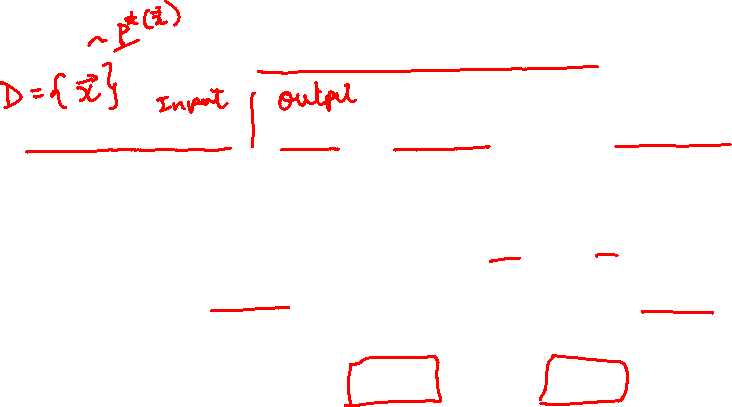 ~ P*(x⃗)
D = { x⃗ }
Input | Output